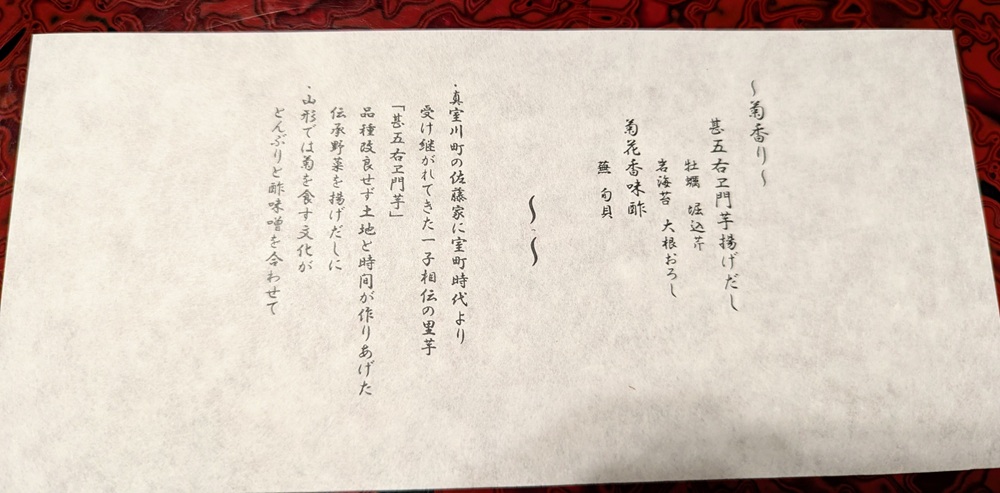 ～菊香り～
甚五右ヱ門芋揚げだし
牡蠣 堀込芹
岩海苔 大根おろし
菊花香味酢
蕪 旬貝
～～
・真室川町の佐藤家に室町時代より
受け継がれてきた一子相伝の里芋
「甚五右ヱ門芋」
品種改良せず土地と時間が作りあげた
伝承野菜を揚げだしに
・山形では菊を食す文化が
とんぶりと酢味噌を合わせて